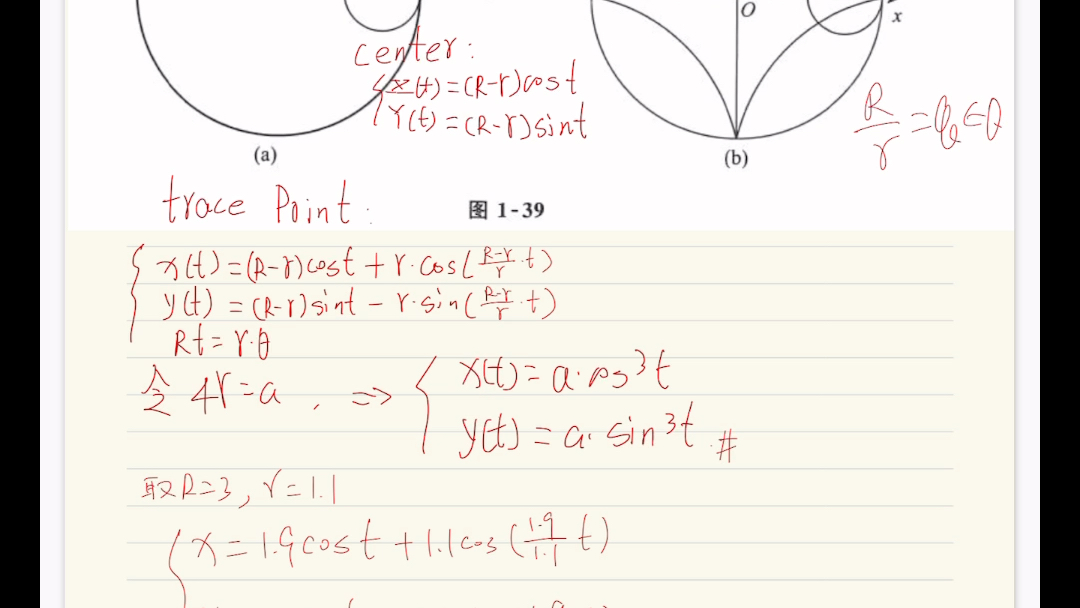 O
x
center:
x(t)=(R-r)cost
Y(t)=(R-r)sint
R/r = ∈Q
(a)
(b)
trace Point:
图 1-39
x(t)=(R-r)cost+r·cos(R-r/r·t)
y(t)=(R-r)sint-r·sin(R-r/r·t)
Rt=r·θ
令 4r=a, => x(t)=a·cos³t
y(t)=a·sin³t #
取R=3, r=1.1
x=1.9cost+1.1cos(1.9/1.1 t)